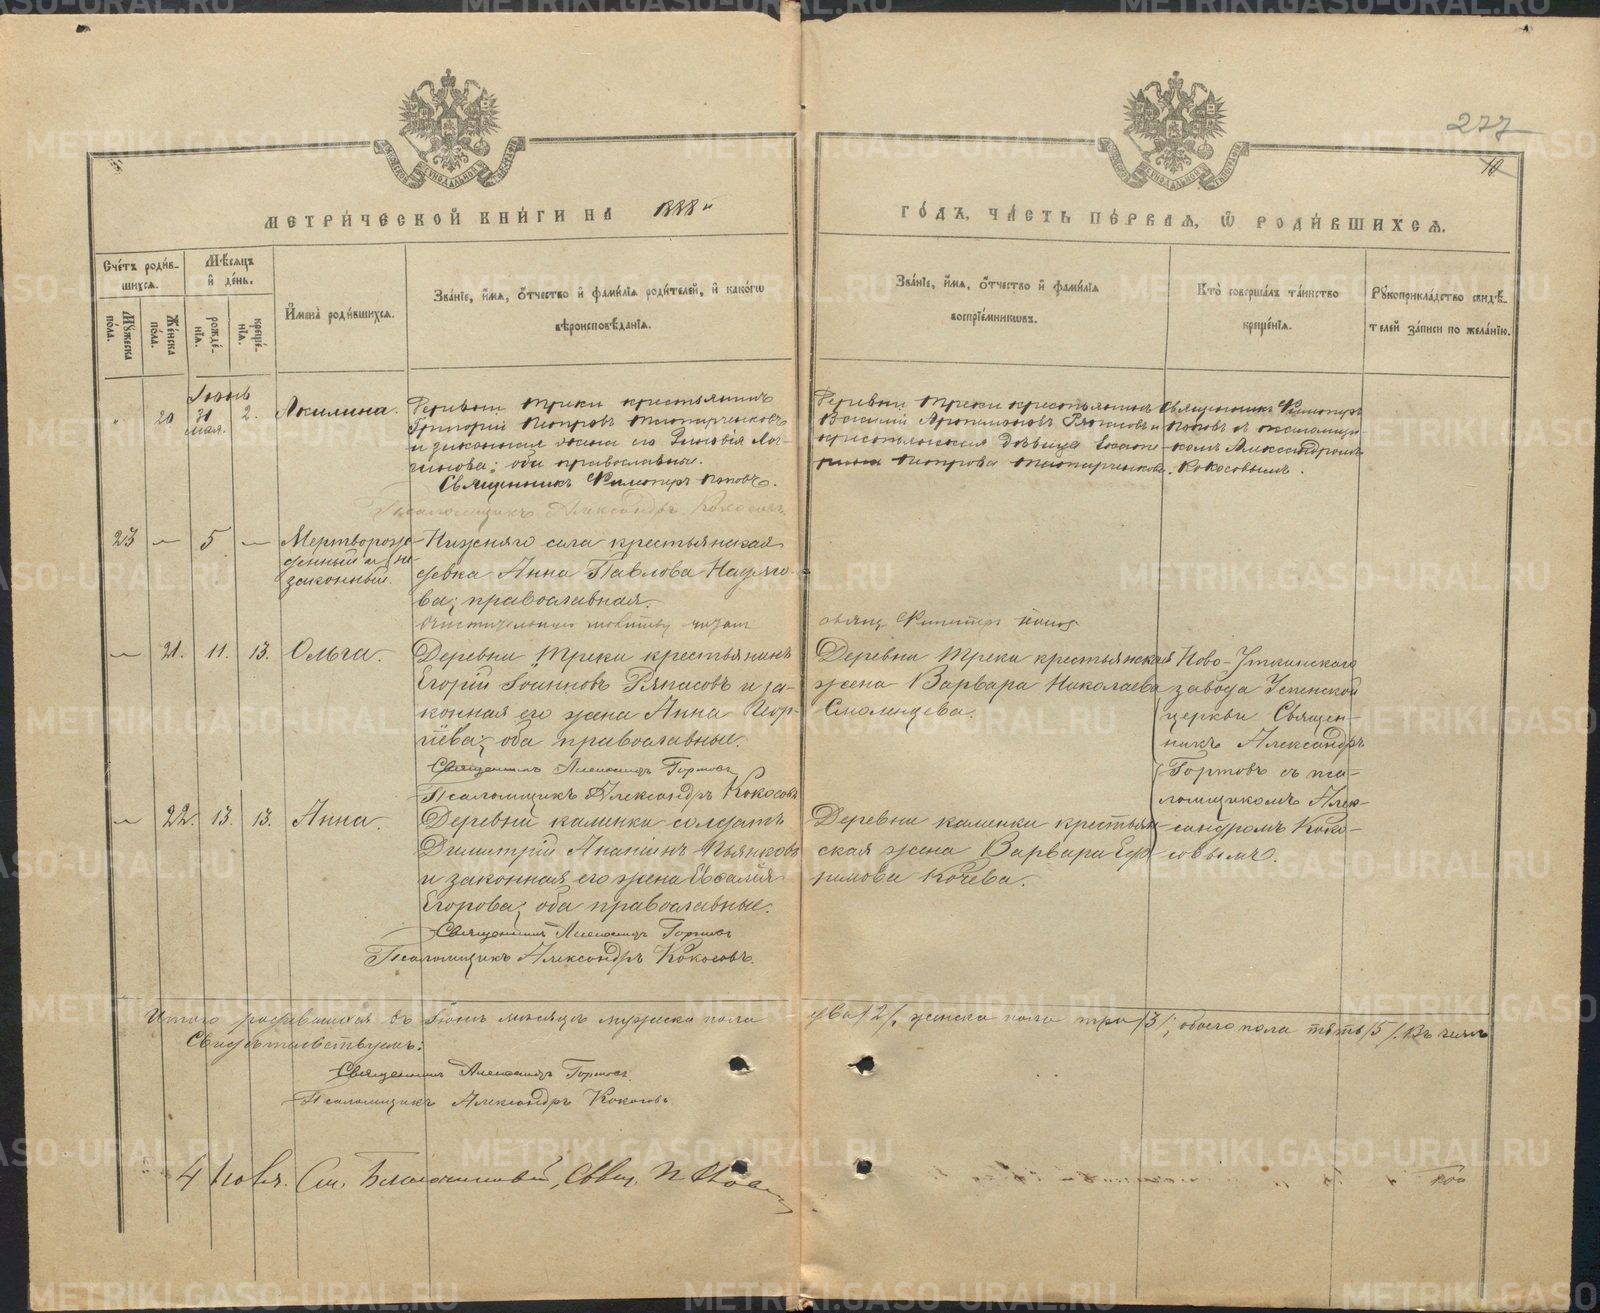 277
10
МЕТРИЧЕСКОЙ КНИГИ НА 1888й
ГОДЪ, ЧАСТЬ ПЕРВАЯ, Ѡ РОДИВШИХСЯ.
Счетъ родившихся.
Мѣсяцъ и день.
Мужеска пола.
Женска пола.
рожденія.
крещенія.
Имена родившихся.
Званіе, имя, отчество и фамилія родителей, и какого вѣроисповѣданія.
Званіе, имя, отчество и фамилія воспріемниковъ.
Кто совершалъ таинство крещенія.
Рукоприкладство свидѣтелей записи по желанію.
Іюнь
20 31 мая. 2. Акилина.
Деревни Треки крестьянинъ
Григорій Петровъ
и законная жена его Зиновія Лог-
гинова; оба православные.
Священникъ Поповъ.
Псаломщикъ Александръ Кокосовъ
Деревни Треки крестьянинъ
Василій Ряпасовъ и
крестьянская дѣвица Екате-
рина Петрова
Священникъ
Поповъ съ псаломщи-
комъ Александромъ
Кокосовымъ.
23 — 5 — Мертворож-
денный и не
законный.
Нижняго села крестьянская
девка Анна Павлова
ва; православная.
Очистительную молитву читалъ
свящ. Попов
— 21. 11. 13. Ольга.
Деревни Треки крестьянинъ
Егорій Іоанновъ Ряпасовъ и за-
конная его жена Анна Геор-
гіева; оба православные.
Священникъ Александръ Гортовъ
Псаломщикъ Александръ Кокосовъ
Деревни Треки крестьянская
жена Варвара Николаева
Смолинцева.
Ново-Уткинскаго
завода Успенской
церкви Священ-
никъ Александръ
Гортовъ съ пса-
ломщикомъ Алек-
сандромъ Коко-
совымъ.
— 22. 13. 13. Анна.
Деревни Каменки солдатъ
Димитрій Ананіинъ Пьянковъ
и законная его жена Евѳалія
Егорова; оба православные.
Священникъ Александръ Гортовъ
Псаломщикъ Александръ Кокосовъ.
Деревни Каменки крестьян-
ская жена Варвара Еф-
имова Кочева.
Итого родившихся въ Іюнѣ мѣсяцѣ мужеска пола два /2/, женска пола три /3/; обоего пола пять /5/. Въ чемъ
Свидѣтельствуемъ:
Священникъ Александръ Гортовъ
Псаломщикъ Александръ Кокосовъ
4
METRIKI.GASO-URAL.RU